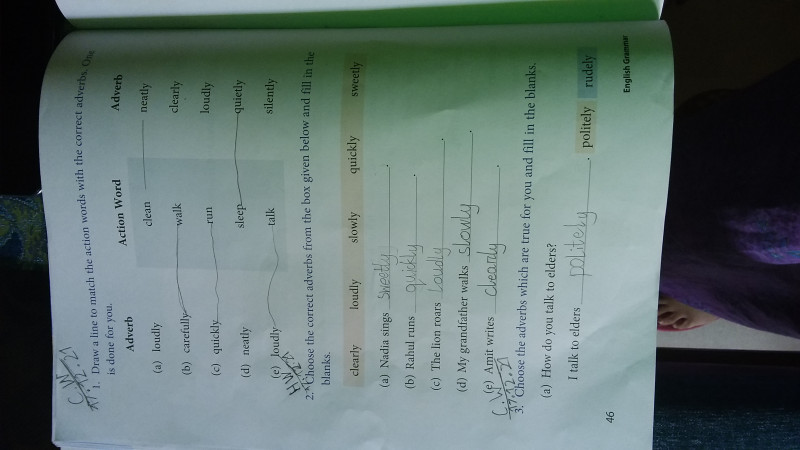 C.W
17.12.21
1. Draw a line to match the action words with the correct adverbs. One
is done for you.
Adverb Action Word Adverb
(a) loudly clean neatly
(b) carefully walk clearly
(c) quickly run loudly
(d) neatly sleep quietly
(e) loudly talk silently
H.W
2. Choose the correct adverbs from the box given below and fill in the
blanks.
clearly loudly slowly quickly sweetly
(a) Nadia sings sweetly.
(b) Rahul runs quickly.
(c) The lion roars loudly.
(d) My grandfather walks slowly.
(e) Amit writes clearly.
C.W
17.12.21
3. Choose the adverbs which are true for you and fill in the blanks.
(a) How do you talk to elders?
I talk to elders politely. politely rudely
46 English Grammar